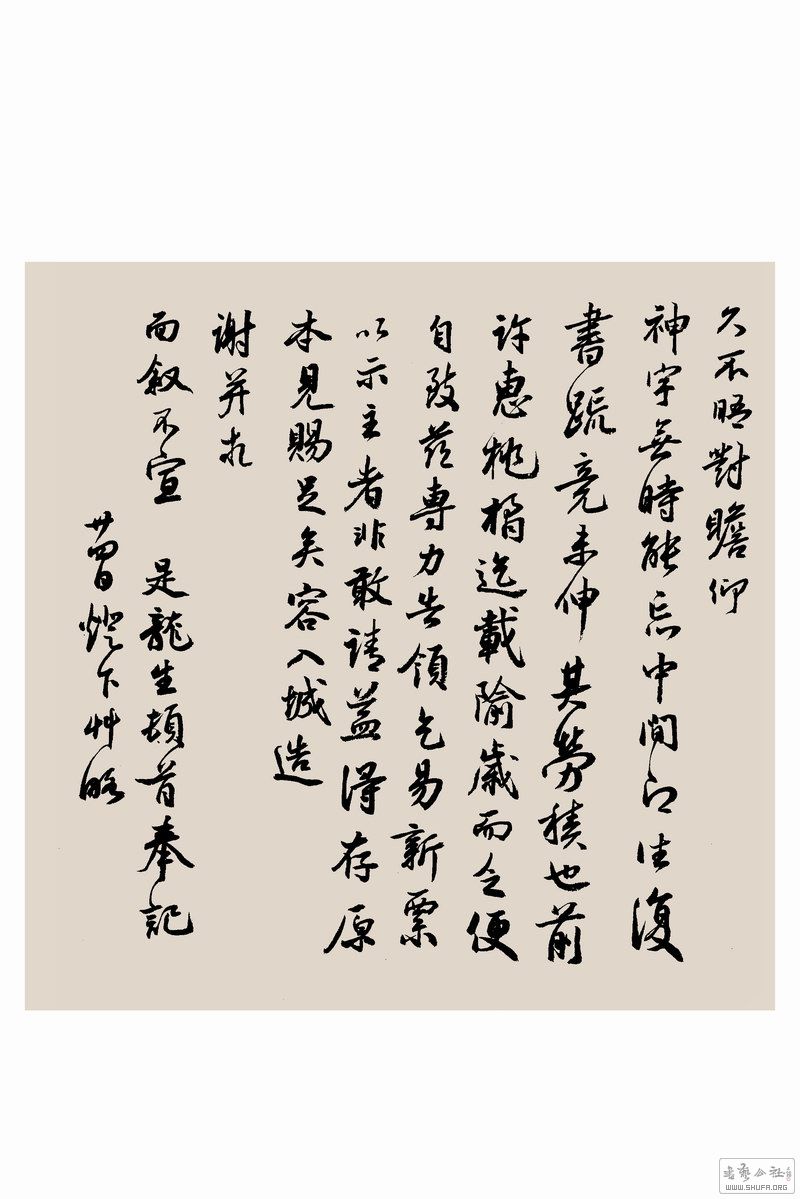 久不晤對瞻仰
神宇無時能忘中間口往復
書疏竟未伸其勞積也前
許惠桃橘迄載隃歲而令便
自致茲專力告領乞易新票
以示主者非敢請益得存原
本見賜足矣容入城造
謝并求
面敘不宣 是龍生頓首奉記
廿四日燈下艸略
書藝公社
WWW.SHUFA.ORG